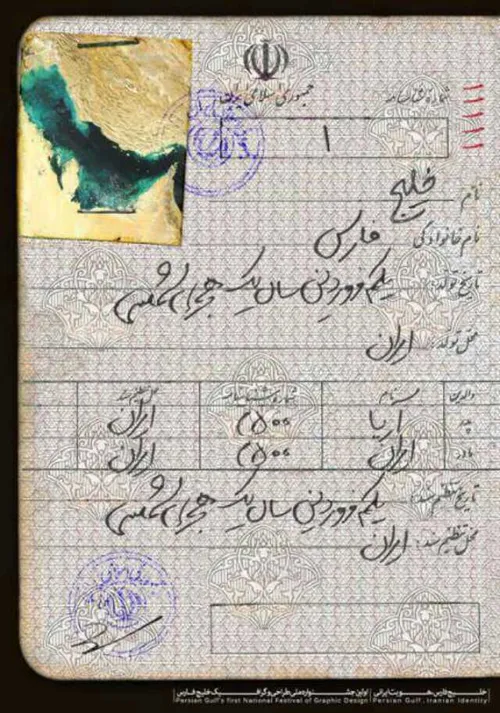 جمهوری اسلامی ایران
شماره شناسنامه
۱۱۱۱۱
۱
نام خلیج
نام خانوادگی فارس
تاریخ تولد: یکم فروردین سال یک هجری شمسی
محل تولد: ایران
والدین نام شماره شناسنامه محل تنظیم سند
پدر آریا ۲۵۰۰ ایران
مادر ایران ۲۵۰۰ ایران
تاریخ تنظیم سند: یکم فروردین سال یک هجری شمسی
محل تنظیم سند: ایران
خلیج فارس هویت ایرانی | اولین جشنواره ملی طراحی گرافیک خلیج فارس
Persian Gulf's first National Festival of Graphic Design | Persian Gulf, Iranian Identity